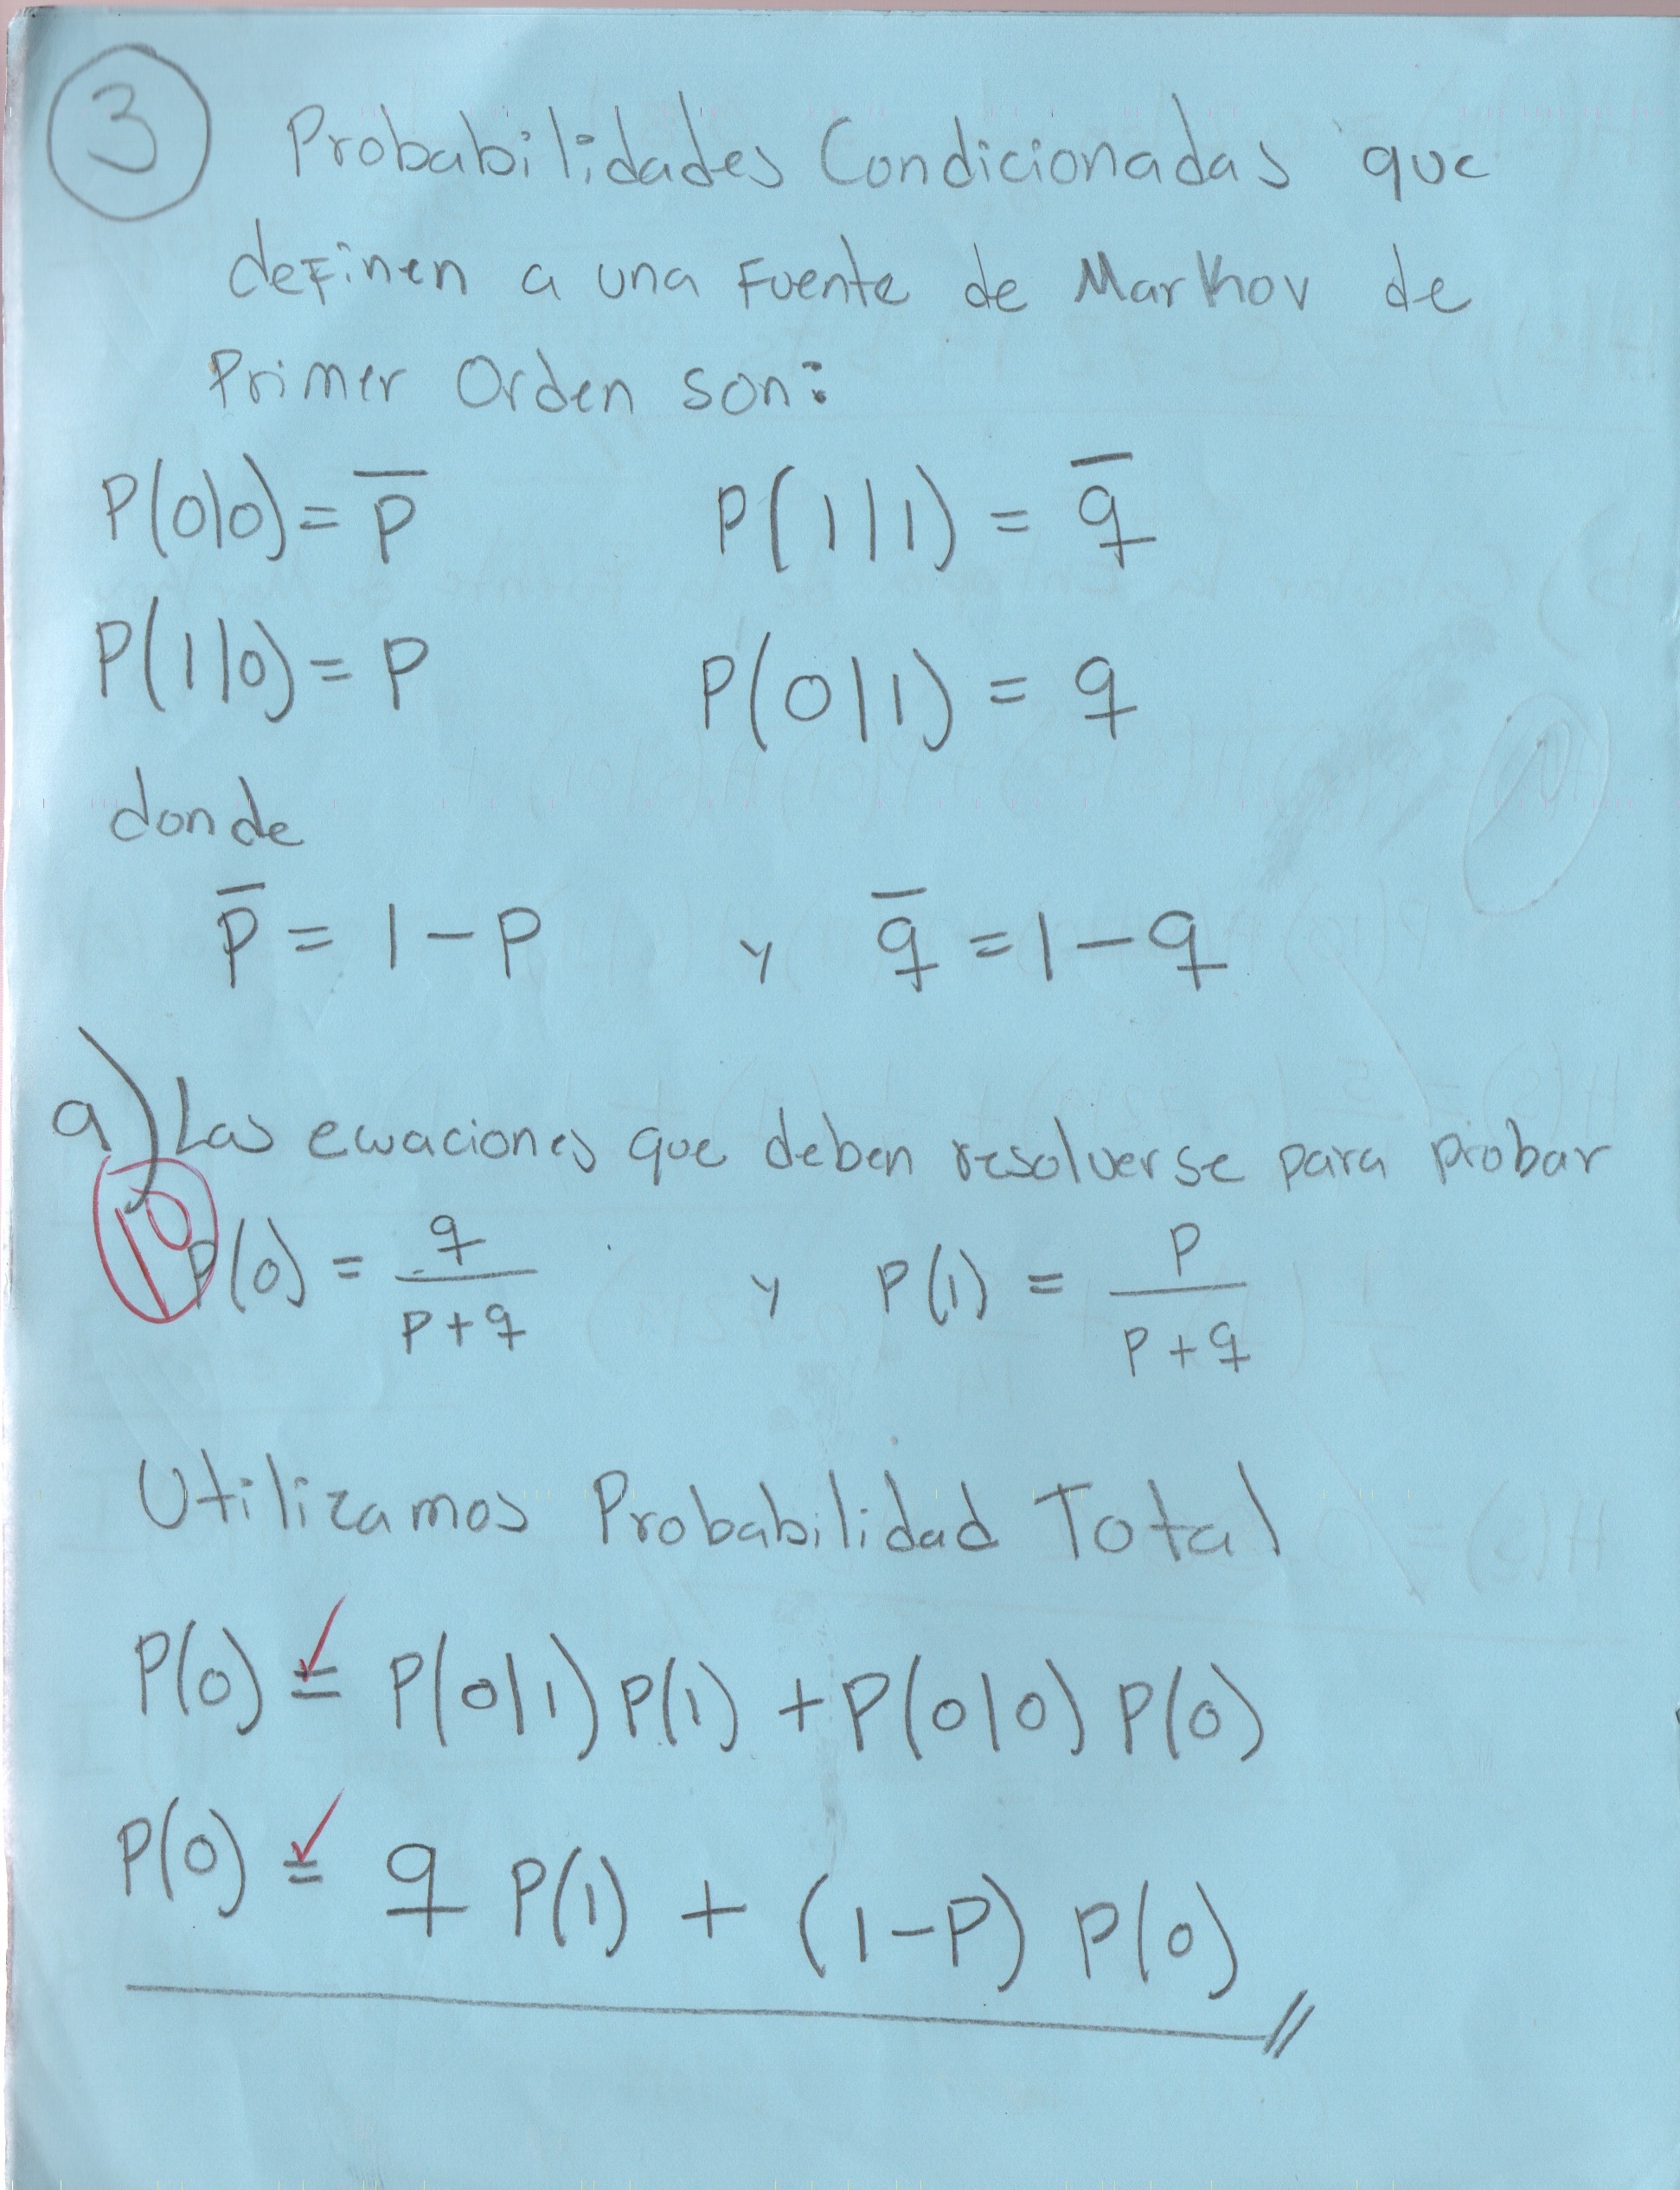 3 Probabilidades Condicionadas que
definen a una Fuente de Markov de
Primer Orden son:
P(0|0) = p̅    P(1|1) = q̅
P(1|0) = p    P(0|1) = q
donde
p̅ = 1 - p    y    q̅ = 1 - q
a) Las ecuaciones que deben resolverse para probar
10
P(0) = q/(p+q)    y    P(1) = p/(p+q)
Utilizamos Probabilidad Total
P(0) = P(0|1) P(1) + P(0|0) P(0)
P(0) = q P(1) + (1-p) P(0)